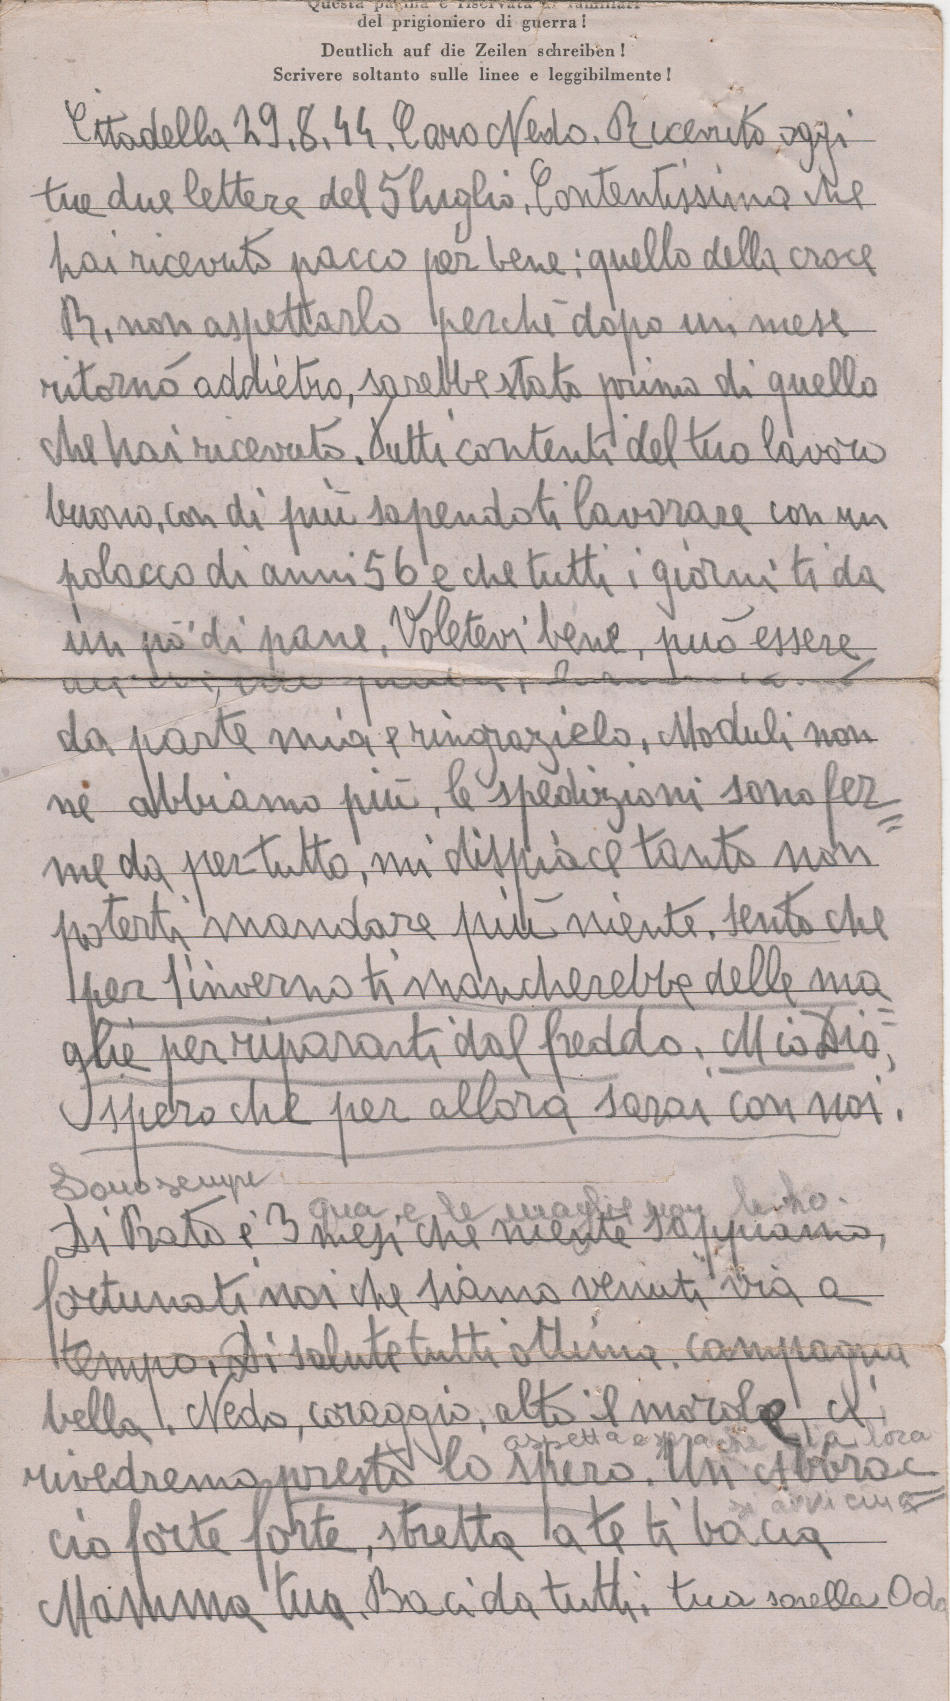 Questa pagina è riservata ai familiari
del prigioniero di guerra!
Deutlich auf die Zeilen schreiben!
Scrivere soltanto sulle linee e leggibilmente!
Cittadella 29.8.44. Caro Nedo. Ricevuto oggi
tue due lettere del 5 luglio. Contentissima che
hai ricevuto pacco per bene; quello della croce
R. non aspettarlo perchè dopo un mese
ritornò addietro, sarebbe stato primo di quello
che hai ricevuto. Tutti contenti del tuo lavoro
buono, con di più sapendoti lavorare con un
polacco di anni 56 e che tutti i giorni ti da
un pò di pane. Voletevi bene, può essere
da parte mia e ringrazielo. Moduli non
ne abbiamo più, le spedizioni sono fer=
me da per tutto, mi dispiace tanto non
poterti mandare più niente. Sento che
per l'inverno ti mancherebbe delle ma=
glie per ripararti dal freddo. Mio Dio,
spero che per allora sarai con noi.
Sono sempre
qua e le maglie non le ho.
Di Prato è 3 mesi che niente sappiamo,
fortunati noi che siamo venuti via a
tempo. Di salute tutti ottima, campagna
bella. Nedo, coraggio, alto il morale, ci
aspetta e spera che l'ora
rivedremo presto lo spero. Un Abbrac=
si avvicina
cio forte forte, stretta a te ti bacia
Mamma tua. Baci da tutti. tua sorella Oda